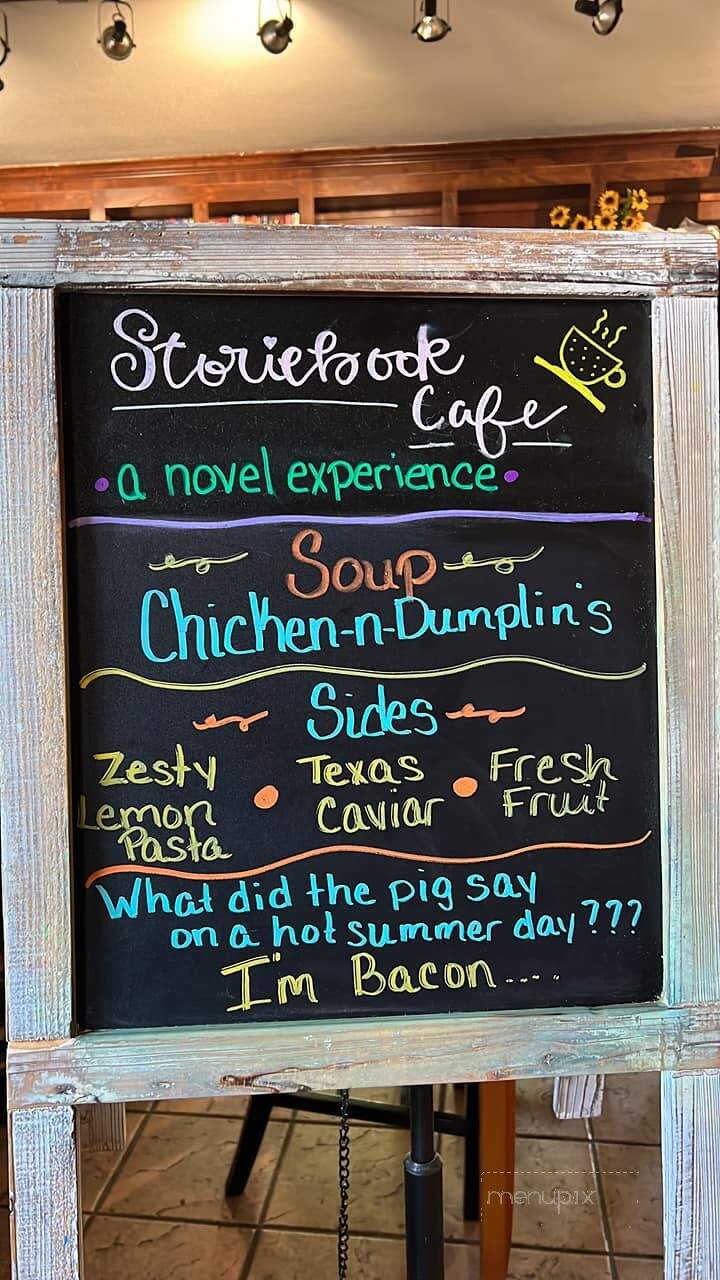 Storiebook
Cafe
• a novel experience •
Soup
Chicken-n-Dumplin's
Sides
Zesty Lemon Pasta • Texas Caviar • Fresh Fruit
What did the pig say
on a hot summer day???
I'm Bacon.....
menupix